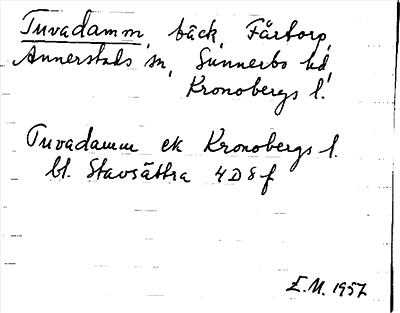 Tuvadamm, bäck, Fårtorp,
Annerstads sn, Sunnerbo hd,
Kronobergs l.
Tuvadamm ek Kronobergs l.
bl. Stavsättra 4D8f
E.M. 1957